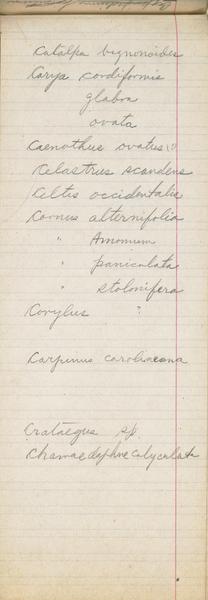 Catalpa bignonoides
Carya cordiformis
glabra
ovata
Caenothus ovatus (?)
Celastrus scandens
Celtis occidentalis
Cornus alternifolia
" Amomum
" paniculata
" stolonifera
Corylus ?
Carpinus caroliniana
Crataegus sp.
Chamaedaphne calyculata